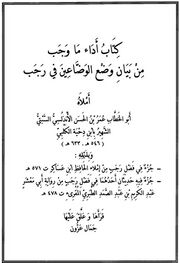 كِتَابُ أَدَاءِ مَا وَجَبَ
مِنْ بَيَانِ وَضْعِ الوَضَّاعِينَ فِي رَجَبٍ
أَمْلَاهُ
أبو الخطاب عمر بن الحسن الأندلسي السبتي
الشهير بابن دحية الكلبي
( ٥٤٦ هـ - ٦٣٣ هـ )
ويليه :
- جزء في فضل رجب من إملاء الحافظ ابن عساكر ت ٥٧١ هـ
- جزء فيه حديثان أحدهما في فضل رجب من رواية أبي معشر
عبد الكريم بن عبد الصمد الطبري المقرئ ت ٤٧٨ هـ
قرأها وعلق عليها
جمال عزون